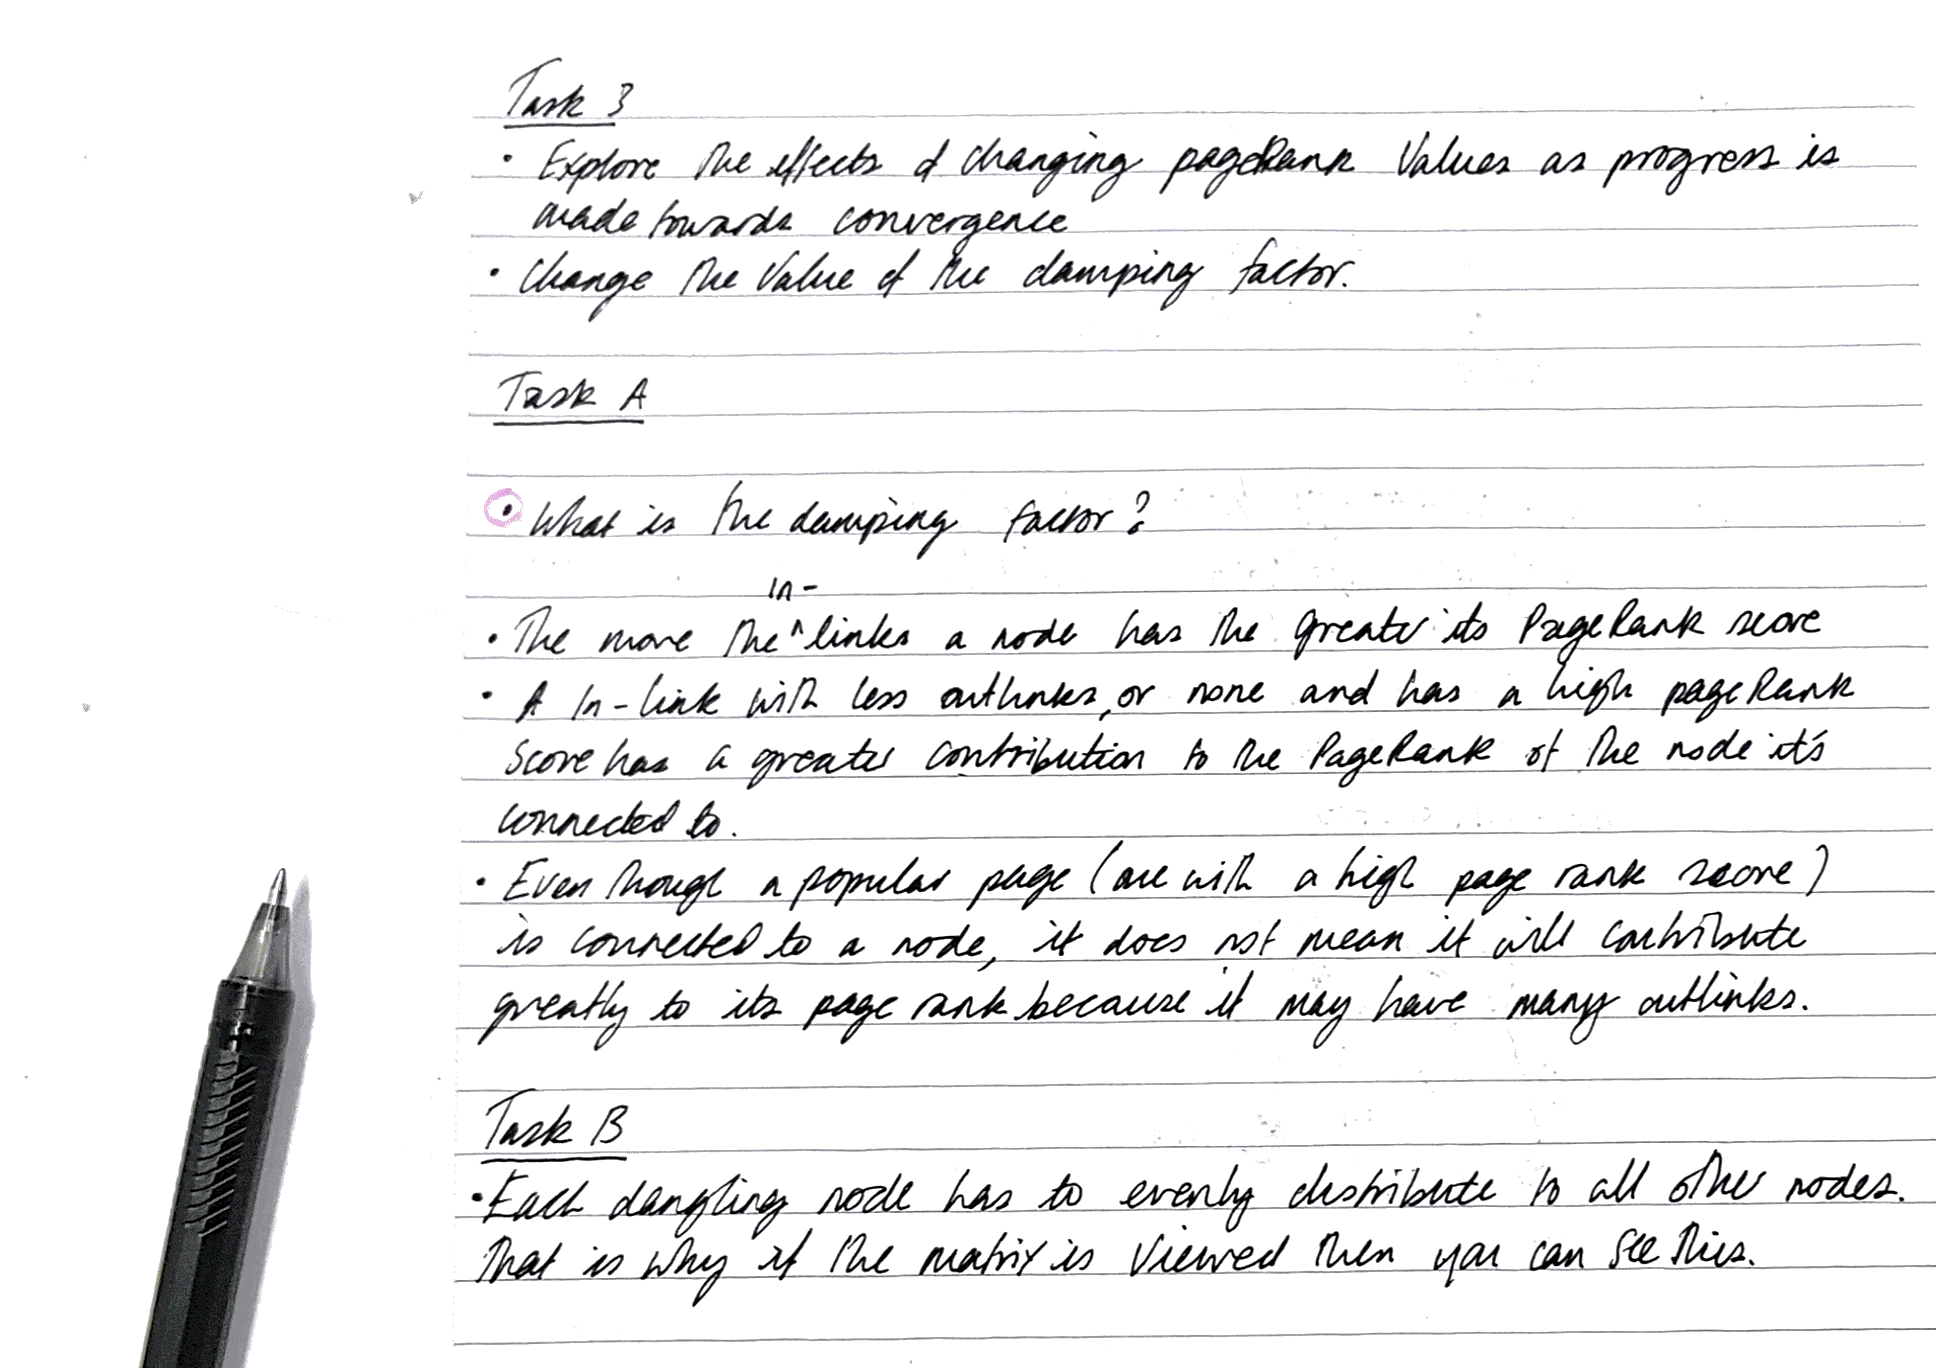 Task 3
• Explore the effects of changing pageRank values as progress is
made towards convergence
• Change the value of the damping factor.
Task A
• What is the damping factor?
in-
• The more the ^ links a node has the greater its PageRank score
• A in-link with less outlinks, or none and has a high pageRank
score has a greater contribution to the PageRank of the node it's
connected to.
• Even though a popular page (one with a high page rank score)
is connected to a node, it does not mean it will contribute
greatly to its page rank because it may have many outlinks.
Task B
• Each dangling node has to evenly distribute to all other nodes.
That is why if the matrix is viewed then you can see this.